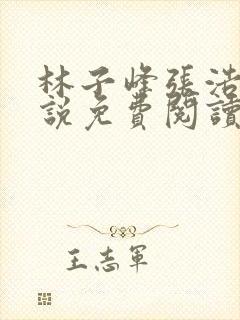 林子峰張浩
說免費閱讀
王志軍